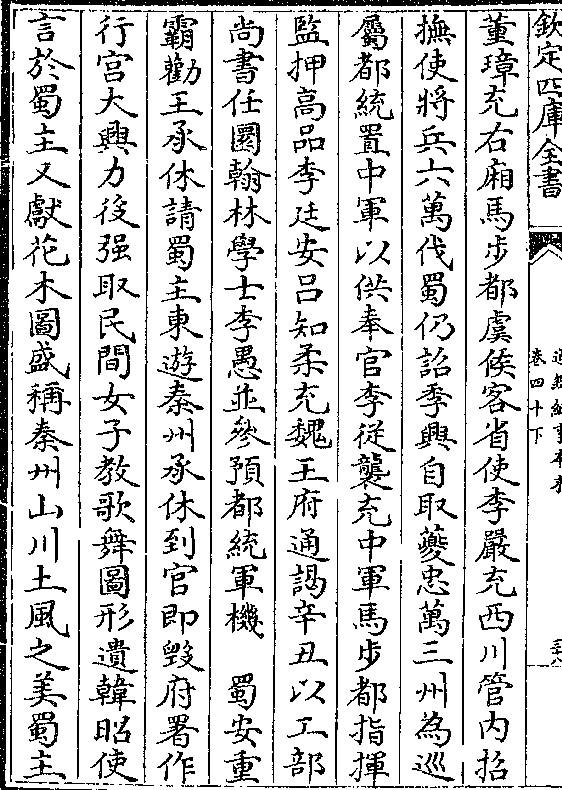 欽定四庫全書
卷四十下
董璋充右廂馬步都虞候客省使李嚴充西川管内招
撫使將兵六萬伐蜀仍詔季興自取夔忠萬三州為巡
屬都統置中軍以供奉官李從襲充中軍馬步都指揮
監押高品李廷安吕知柔充魏王府通謁辛丑以工部
尚書任圜翰林學士李愚並參預都統軍機　蜀安重
霸勸王承休請蜀主東遊秦州承休到官即毁府署作
行宫大興力役强取民間女子教歌舞圖形遺韓昭使
言於蜀主又獻花木圖盛稱秦州山川土風之美蜀主